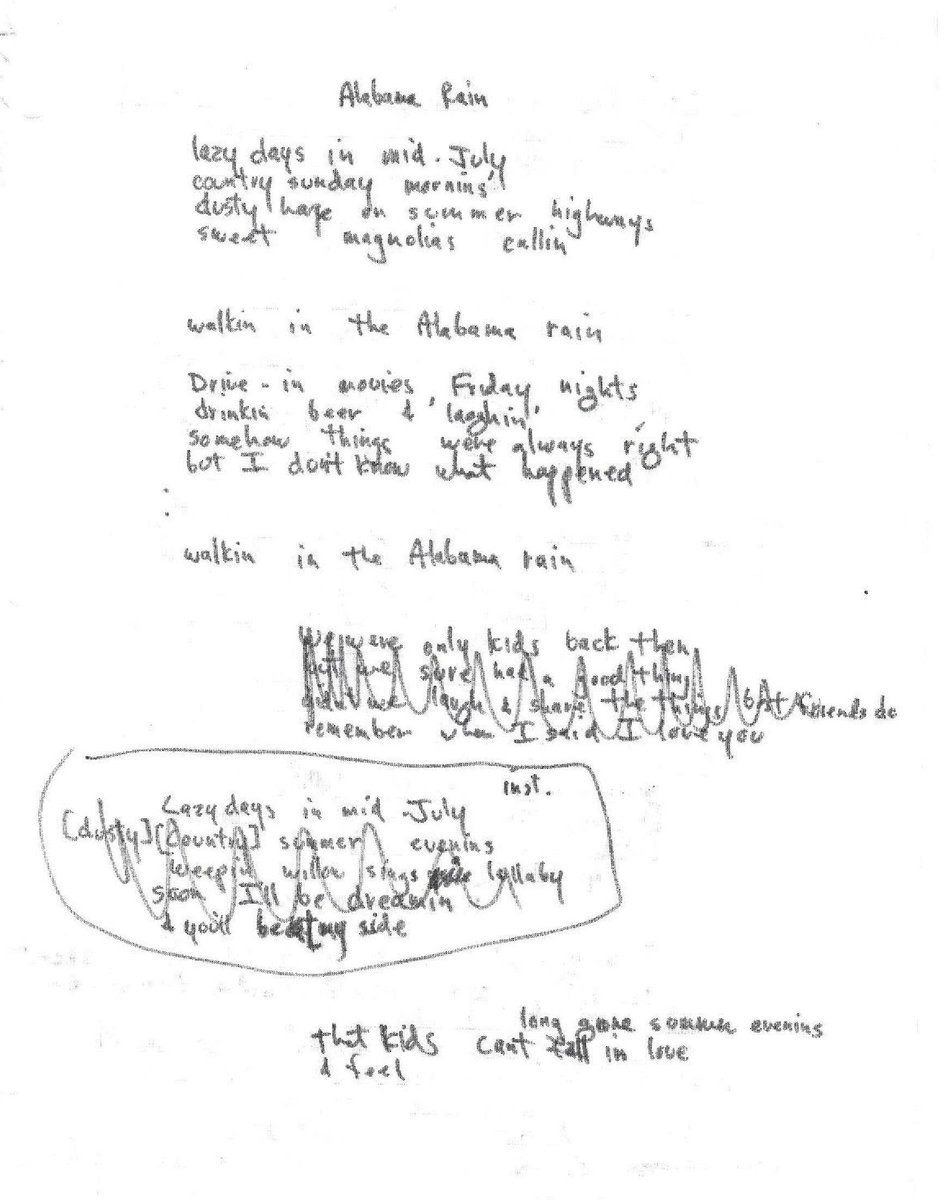 Alabama Rain
lazy days in mid-July
country sunday mornins'
dusty haze on summer highways
sweet magnolias callin
walkin in the Alabama rain
Drive-in movies, Friday nights
drinkin beer & laughin'
somehow things were always right
but I don't know what happened
walkin in the Alabama rain
We were only kids back then
but we sure had a good thing
didn't we laugh & share the things best friends do
remember when I said I love you
inst.
Lazy days in mid-July
[dusty] [country] summer evenins
weepin willow sings lullaby
soon I'll be dreamin
& you'll be at my side
long gone summer evenins
that kids cant fall in love
& feel